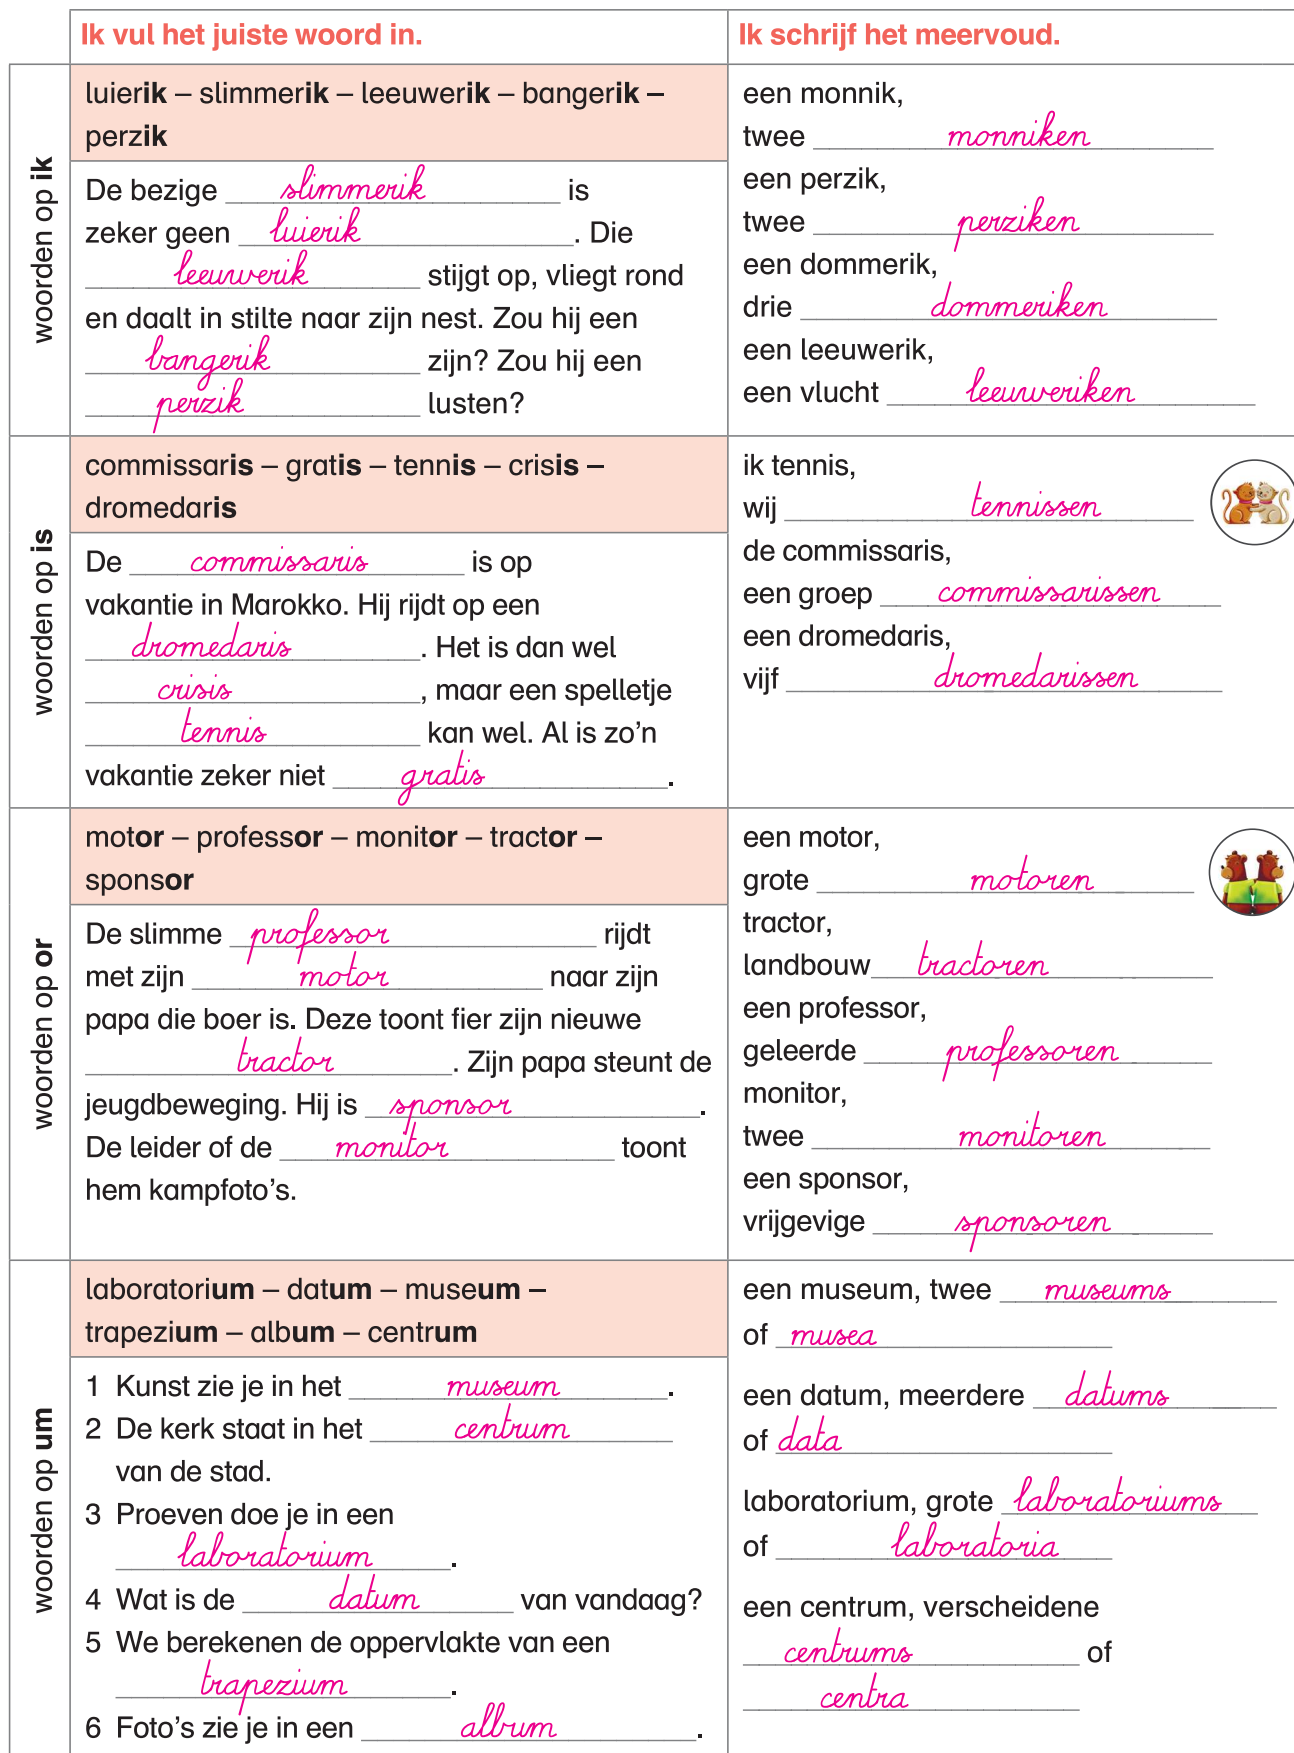 Ik vul het juiste woord in.
Ik schrijf het meervoud.
woorden op ik
luierik – slimmerik – leeuwerik – bangerik –
perzik
De bezige slimmerik is
zeker geen luierik. Die
leeuwerik stijgt op, vliegt rond
en daalt in stilte naar zijn nest. Zou hij een
bangerik zijn? Zou hij een
perzik lusten?
een monnik,
twee monniken
een perzik,
twee perziken
een dommerik,
drie dommeriken
een leeuwerik,
een vlucht leeuweriken
woorden op is
commissaris – gratis – tennis – crisis –
dromedaris
De commissaris is op
vakantie in Marokko. Hij rijdt op een
dromedaris. Het is dan wel
crisis, maar een spelletje
tennis kan wel. Al is zo'n
vakantie zeker niet gratis.
ik tennis,
wij tennissen
de commissaris,
een groep commissarissen
een dromedaris,
vijf dromedarissen
woorden op or
motor – professor – monitor – tractor –
sponsor
De slimme professor rijdt
met zijn motor naar zijn
papa die boer is. Deze toont fier zijn nieuwe
tractor. Zijn papa steunt de
jeugdbeweging. Hij is sponsor.
De leider of de monitor toont
hem kampfoto's.
een motor,
grote motoren
tractor,
landbouw tractoren
een professor,
geleerde professoren
monitor,
twee monitoren
een sponsor,
vrijgevige sponsoren
woorden op um
laboratorium – datum – museum –
trapezium – album – centrum
1 Kunst zie je in het museum.
2 De kerk staat in het centrum
van de stad.
3 Proeven doe je in een
laboratorium.
4 Wat is de datum van vandaag?
5 We berekenen de oppervlakte van een
trapezium.
6 Foto's zie je in een album.
een museum, twee museums
of musea
een datum, meerdere datums
of data
laboratorium, grote laboratoriums
of laboratoria
een centrum, verscheidene
centrums of
centra